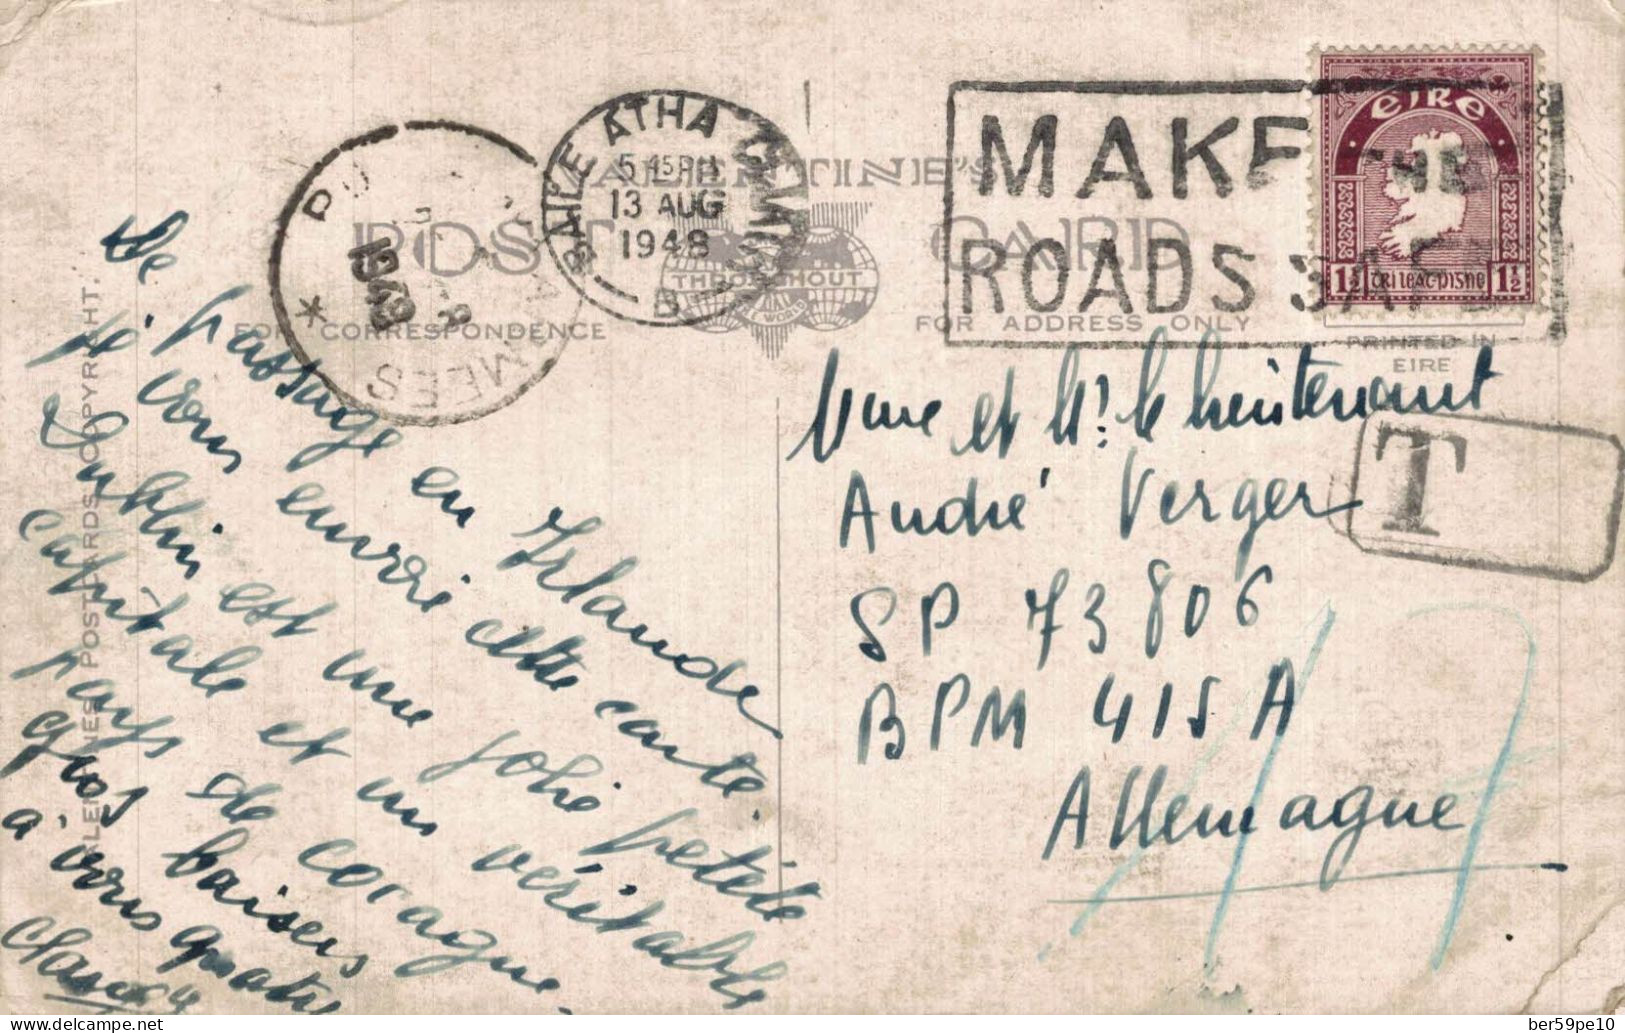 VALENTINE'S
POST CARD
THROUGHOUT
THE WORLD
FOR CORRESPONDENCE
FOR ADDRESS ONLY
PRINTED IN
EIRE
VALENTINES POSTCARDS COPYRIGHT.
BAILE ATHA CLIATH
5 45 PM
13 AUG
1948
B
1948
ARMEES
MAKE THE
ROADS SAFE
EIRE
1½ trí leac-pisne 1½
T
De passage en Irlande
je vous envoie cette carte.
Dublin est une jolie petite
capitale et un véritable
pays de cocagne.
gros baisers
à vous quatre
Mme et Mr le lieutenant
André Verger
SP 73806
BPM 415 A
Allemagne
delcampe.net
ber59pe10